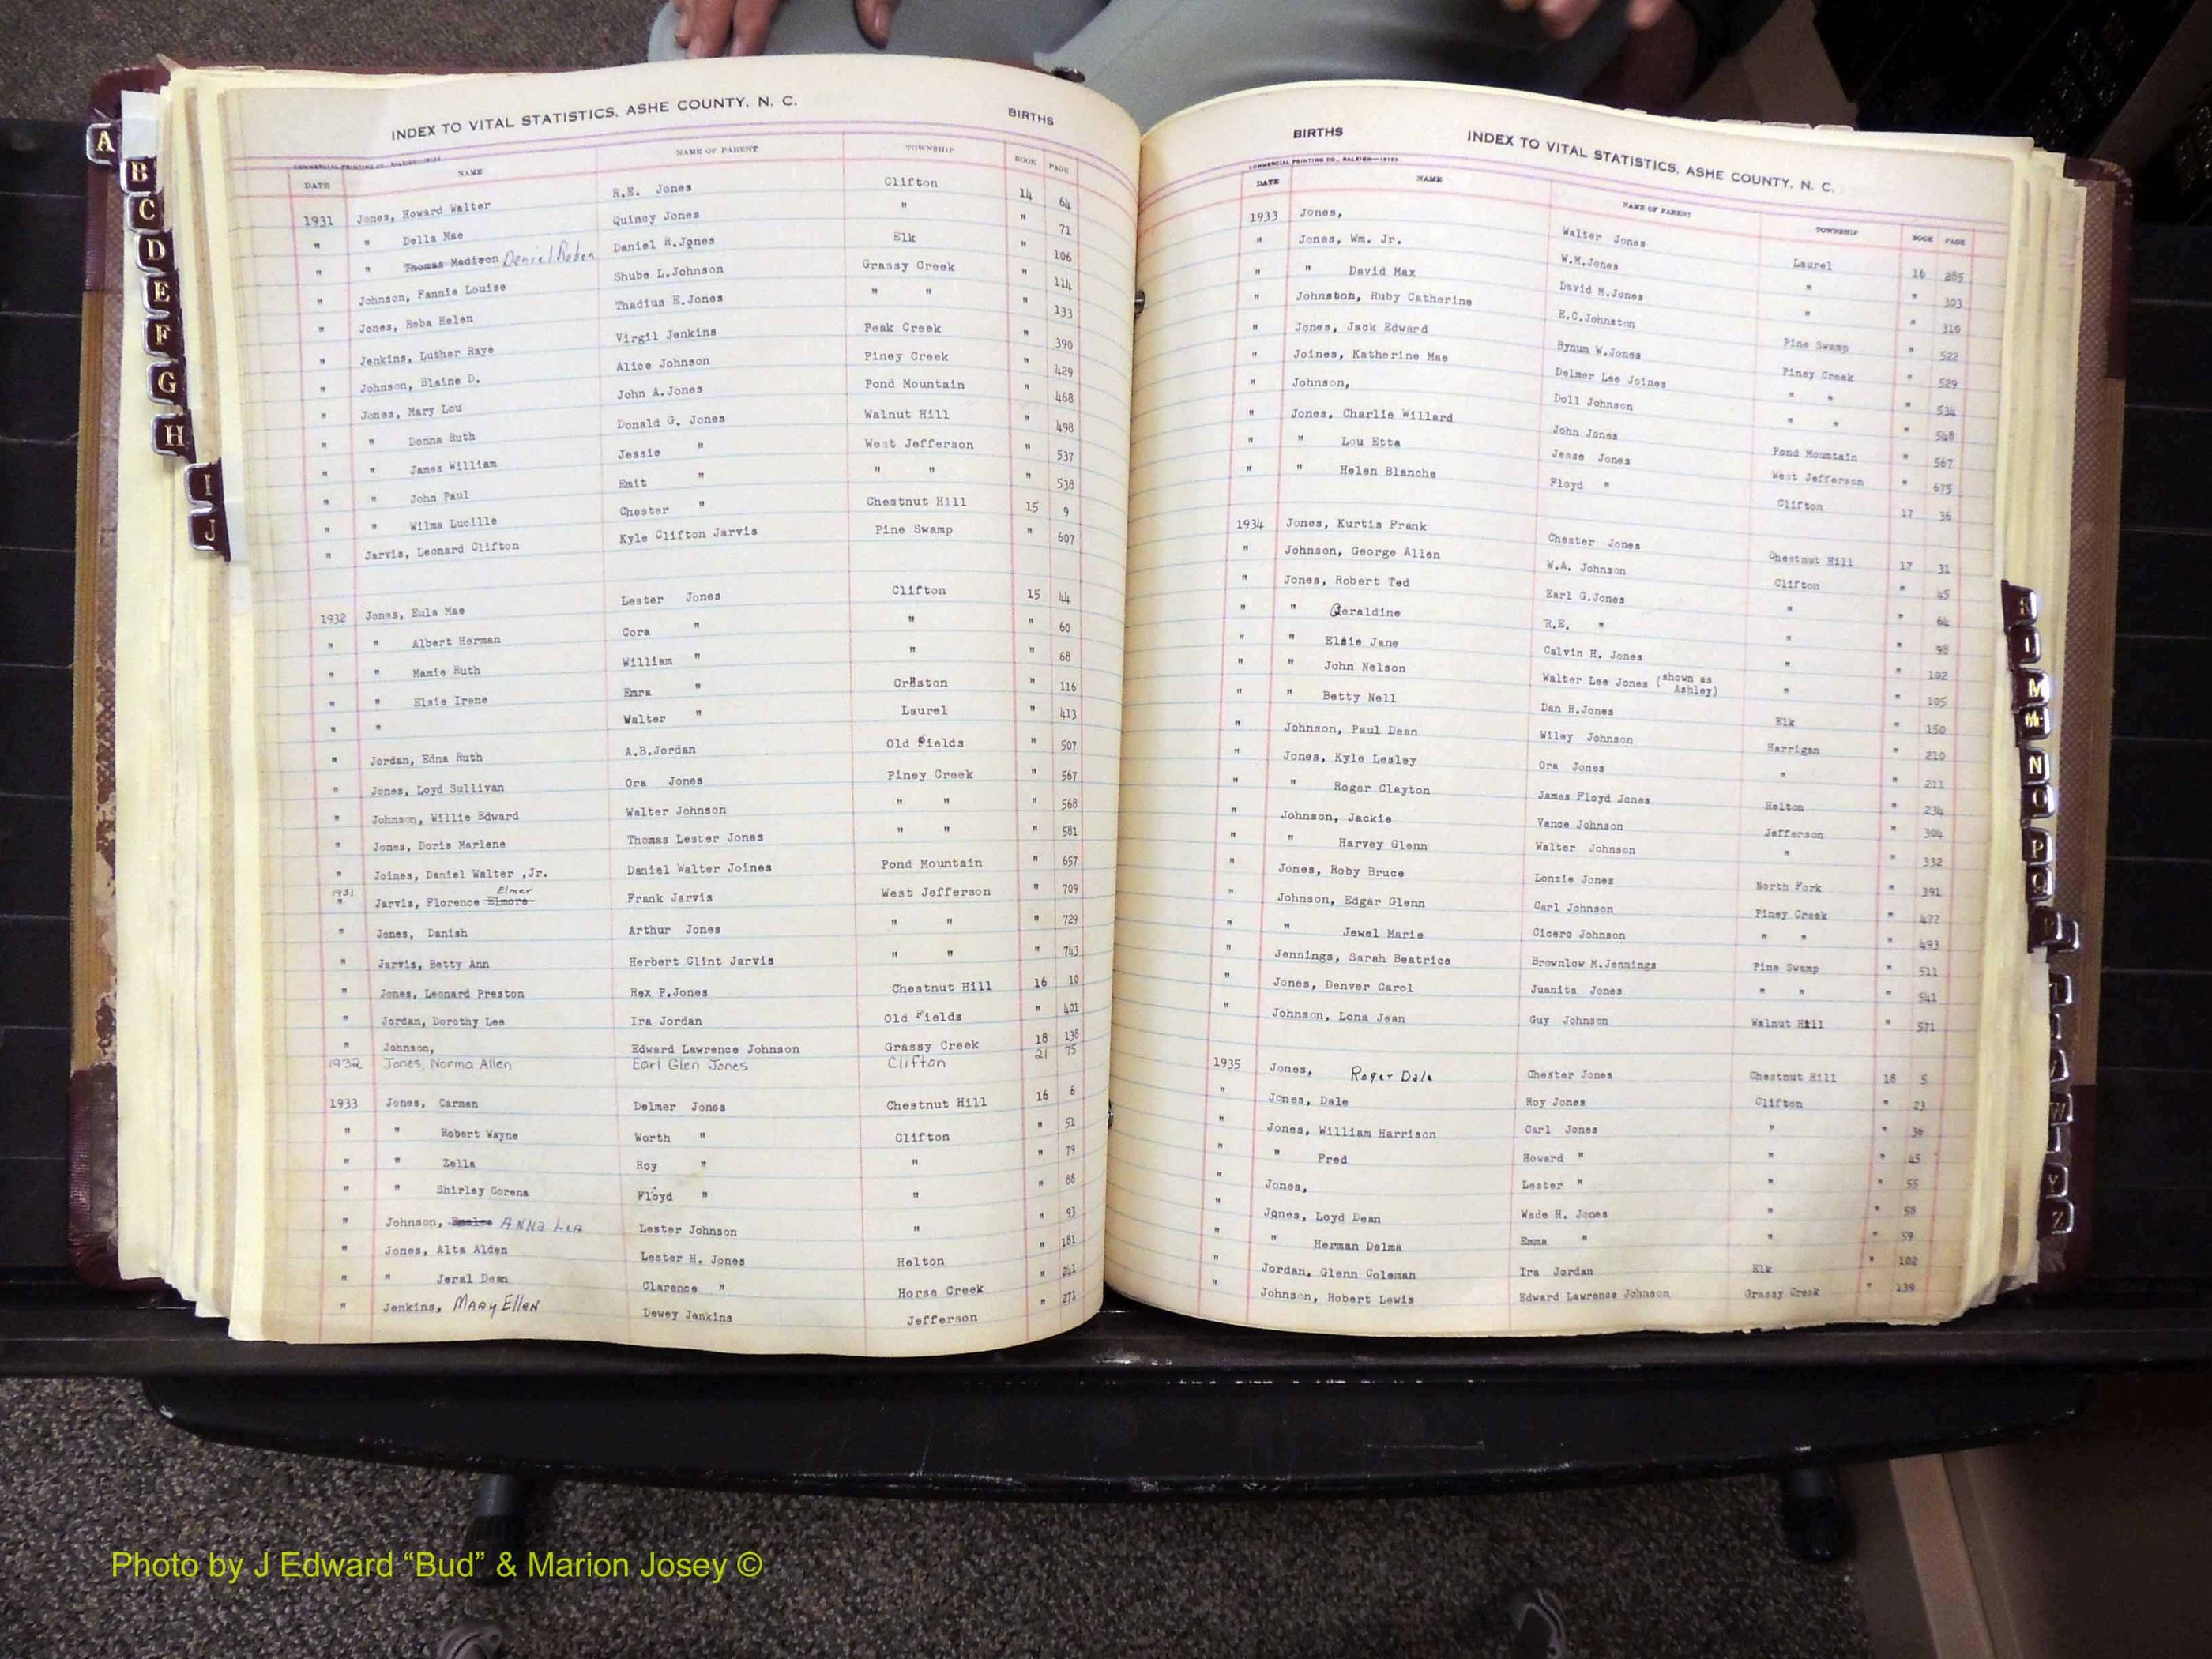 INDEX TO VITAL STATISTICS, ASHE COUNTY, N. C. BIRTHS
COMMERCIAL PRINTING CO., RALEIGH—19133
DATE NAME NAME OF PARENT TOWNSHIP BOOK PAGE
1931 Jones, Howard Walter R.E. Jones Clifton 14 64
" " Della Mae Quincy Jones " " 71
" " Thomas Madison Daniel Ruben Daniel R.Jones Elk " 106
" Johnson, Fannie Louise Shube L.Johnson Grassy Creek " 114
" Jones, Reba Helen Thadius E.Jones " " " 133
" Jenkins, Luther Raye Virgil Jenkins Peak Creek " 390
" Johnson, Blaine D. Alice Johnson Piney Creek " 429
" Jones, Mary Lou John A.Jones Pond Mountain " 468
" " Donna Ruth Donald G. Jones Walnut Hill " 498
" " James William Jessie " West Jefferson " 537
" " John Paul Emit " " " " 538
" " Wilma Lucille Chester " Chestnut Hill 15 9
" Jarvis, Leonard Clifton Kyle Clifton Jarvis Pine Swamp " 607
1932 Jones, Eula Mae Lester Jones Clifton 15 44
" " Albert Herman Cora " " " 60
" " Mamie Ruth William " " " 68
" " Elsie Irene Emra " Creston " 116
" " Walter " Laurel " 413
" Jordan, Edna Ruth A.B.Jordan Old Fields " 507
" Jones, Loyd Sullivan Ora Jones Piney Creek " 567
" Johnson, Willie Edward Walter Johnson " " " 568
" Jones, Doris Marlene Thomas Lester Jones " " " 581
" Joines, Daniel Walter ,Jr. Daniel Walter Joines Pond Mountain " 657
1931 Elmer
" Jarvis, Florence Elmore Frank Jarvis West Jefferson " 709
" Jones, Danish Arthur Jones " " " 729
" Jarvis, Betty Ann Herbert Clint Jarvis " " " 743
" Jones, Leonard Preston Rex P.Jones Chestnut Hill 16 10
" Jordan, Dorothy Lee Ira Jordan Old Fields " 401
" Johnson, Edward Lawrence Johnson Grassy Creek 18 138
1932 Jones, Norma Allen Earl Glen Jones Clifton 21 75
1933 Jones, Carmen Delmer Jones Chestnut Hill 16 6
" " Robert Wayne Worth " Clifton " 51
" " Zella Roy " " " 79
" " Shirley Corena Floyd " " " 88
" Johnson, ANNA LEA Lester Johnson " " 93
" Jones, Alta Alden Lester H. Jones Helton " 181
" " Jeral Dean Clarence " Horse Creek " 241
" Jenkins, MARY ELLEN Dewey Jenkins Jefferson " 271
BIRTHS INDEX TO VITAL STATISTICS, ASHE COUNTY, N. C.
COMMERCIAL PRINTING CO., RALEIGH—19133
DATE NAME NAME OF PARENT TOWNSHIP BOOK PAGE
1933 Jones, Walter Jones Laurel 16 285
" Jones, Wm. Jr. W.M.Jones " " 303
" " David Max David M.Jones " " 310
" Johnston, Ruby Catherine E.C.Johnston Pine Swamp " 522
" Jones, Jack Edward Bynum W.Jones Piney Creek " 529
" Joines, Katherine Mae Delmer Lee Joines " " " 534
" Johnson, Doll Johnson " " " 548
" Jones, Charlie Willard John Jones Pond Mountain " 567
" " Lou Etta Jesse Jones West Jefferson " 675
" " Helen Blanche Floyd " Clifton 17 36
1934 Jones, Kurtis Frank Chester Jones Chestnut Hill 17 31
" Johnson, George Allen W.A. Johnson Clifton " 45
" Jones, Robert Ted Earl G.Jones " " 64
" " Geraldine R.E. " " " 98
" " Elsie Jane Calvin H. Jones " " 102
" " John Nelson Walter Lee Jones (shown as Ashley) " " 105
" " Betty Nell Dan R.Jones Elk " 150
" Johnson, Paul Dean Wiley Johnson Harrigan " 210
" Jones, Kyle Lesley Ora Jones " " 211
" " Roger Clayton James Floyd Jones Helton " 234
" Johnson, Jackie Vance Johnson Jefferson " 304
" " Harvey Glenn Walter Johnson " " 332
" Jones, Roby Bruce Lonzie Jones North Fork " 391
" Johnson, Edgar Glenn Carl Johnson Piney Creek " 477
" " Jewel Marie Cicero Johnson " " " 493
" Jennings, Sarah Beatrice Brownlow M.Jennings Pine Swamp " 511
" Jones, Denver Carol Juanita Jones " " " 541
" Johnson, Lona Jean Guy Johnson Walnut Hill " 571
1935 Jones, Roger Dale Chester Jones Chestnut Hill 18 5
" Jones, Dale Roy Jones Clifton " 23
" Jones, William Harrison Carl Jones " " 36
" " Fred Howard " " " 45
" Jones, Lester " " " 55
" Jones, Loyd Dean Wade H. Jones " " 58
" " Herman Delma Emma " " " 59
" Jordan, Glenn Coleman Ira Jordan Elk " 102
" Johnson, Robert Lewis Edward Lawrence Johnson Grassy Creek " 139
A
B
C
D
E
F
G
H
I
J
M
N
O
P
Q
W
Y
Z
Photo by J Edward “Bud” & Marion Josey ©